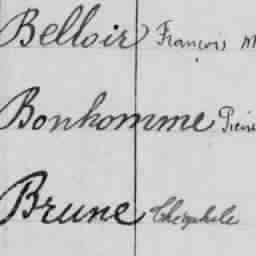 Belloir François M
Bonhomme Pierre
Brune Théophile